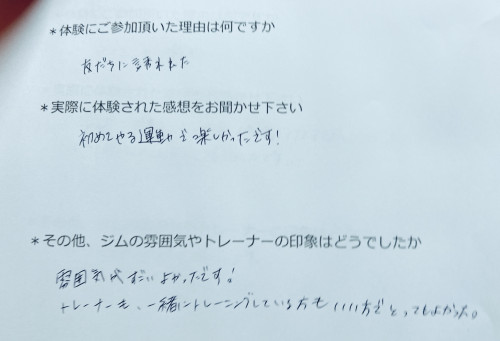 ＊体験にご参加頂いた理由は何ですか
友だちに誘われた
＊実際に体験された感想をお聞かせ下さい
初めてやる運動で楽しかったです!
＊その他、ジムの雰囲気やトレーナーの印象はどうでしたか
雰囲気よかったです!
トレーナーも、一緒にトレーニングしている方もいい方でとってもよかった。